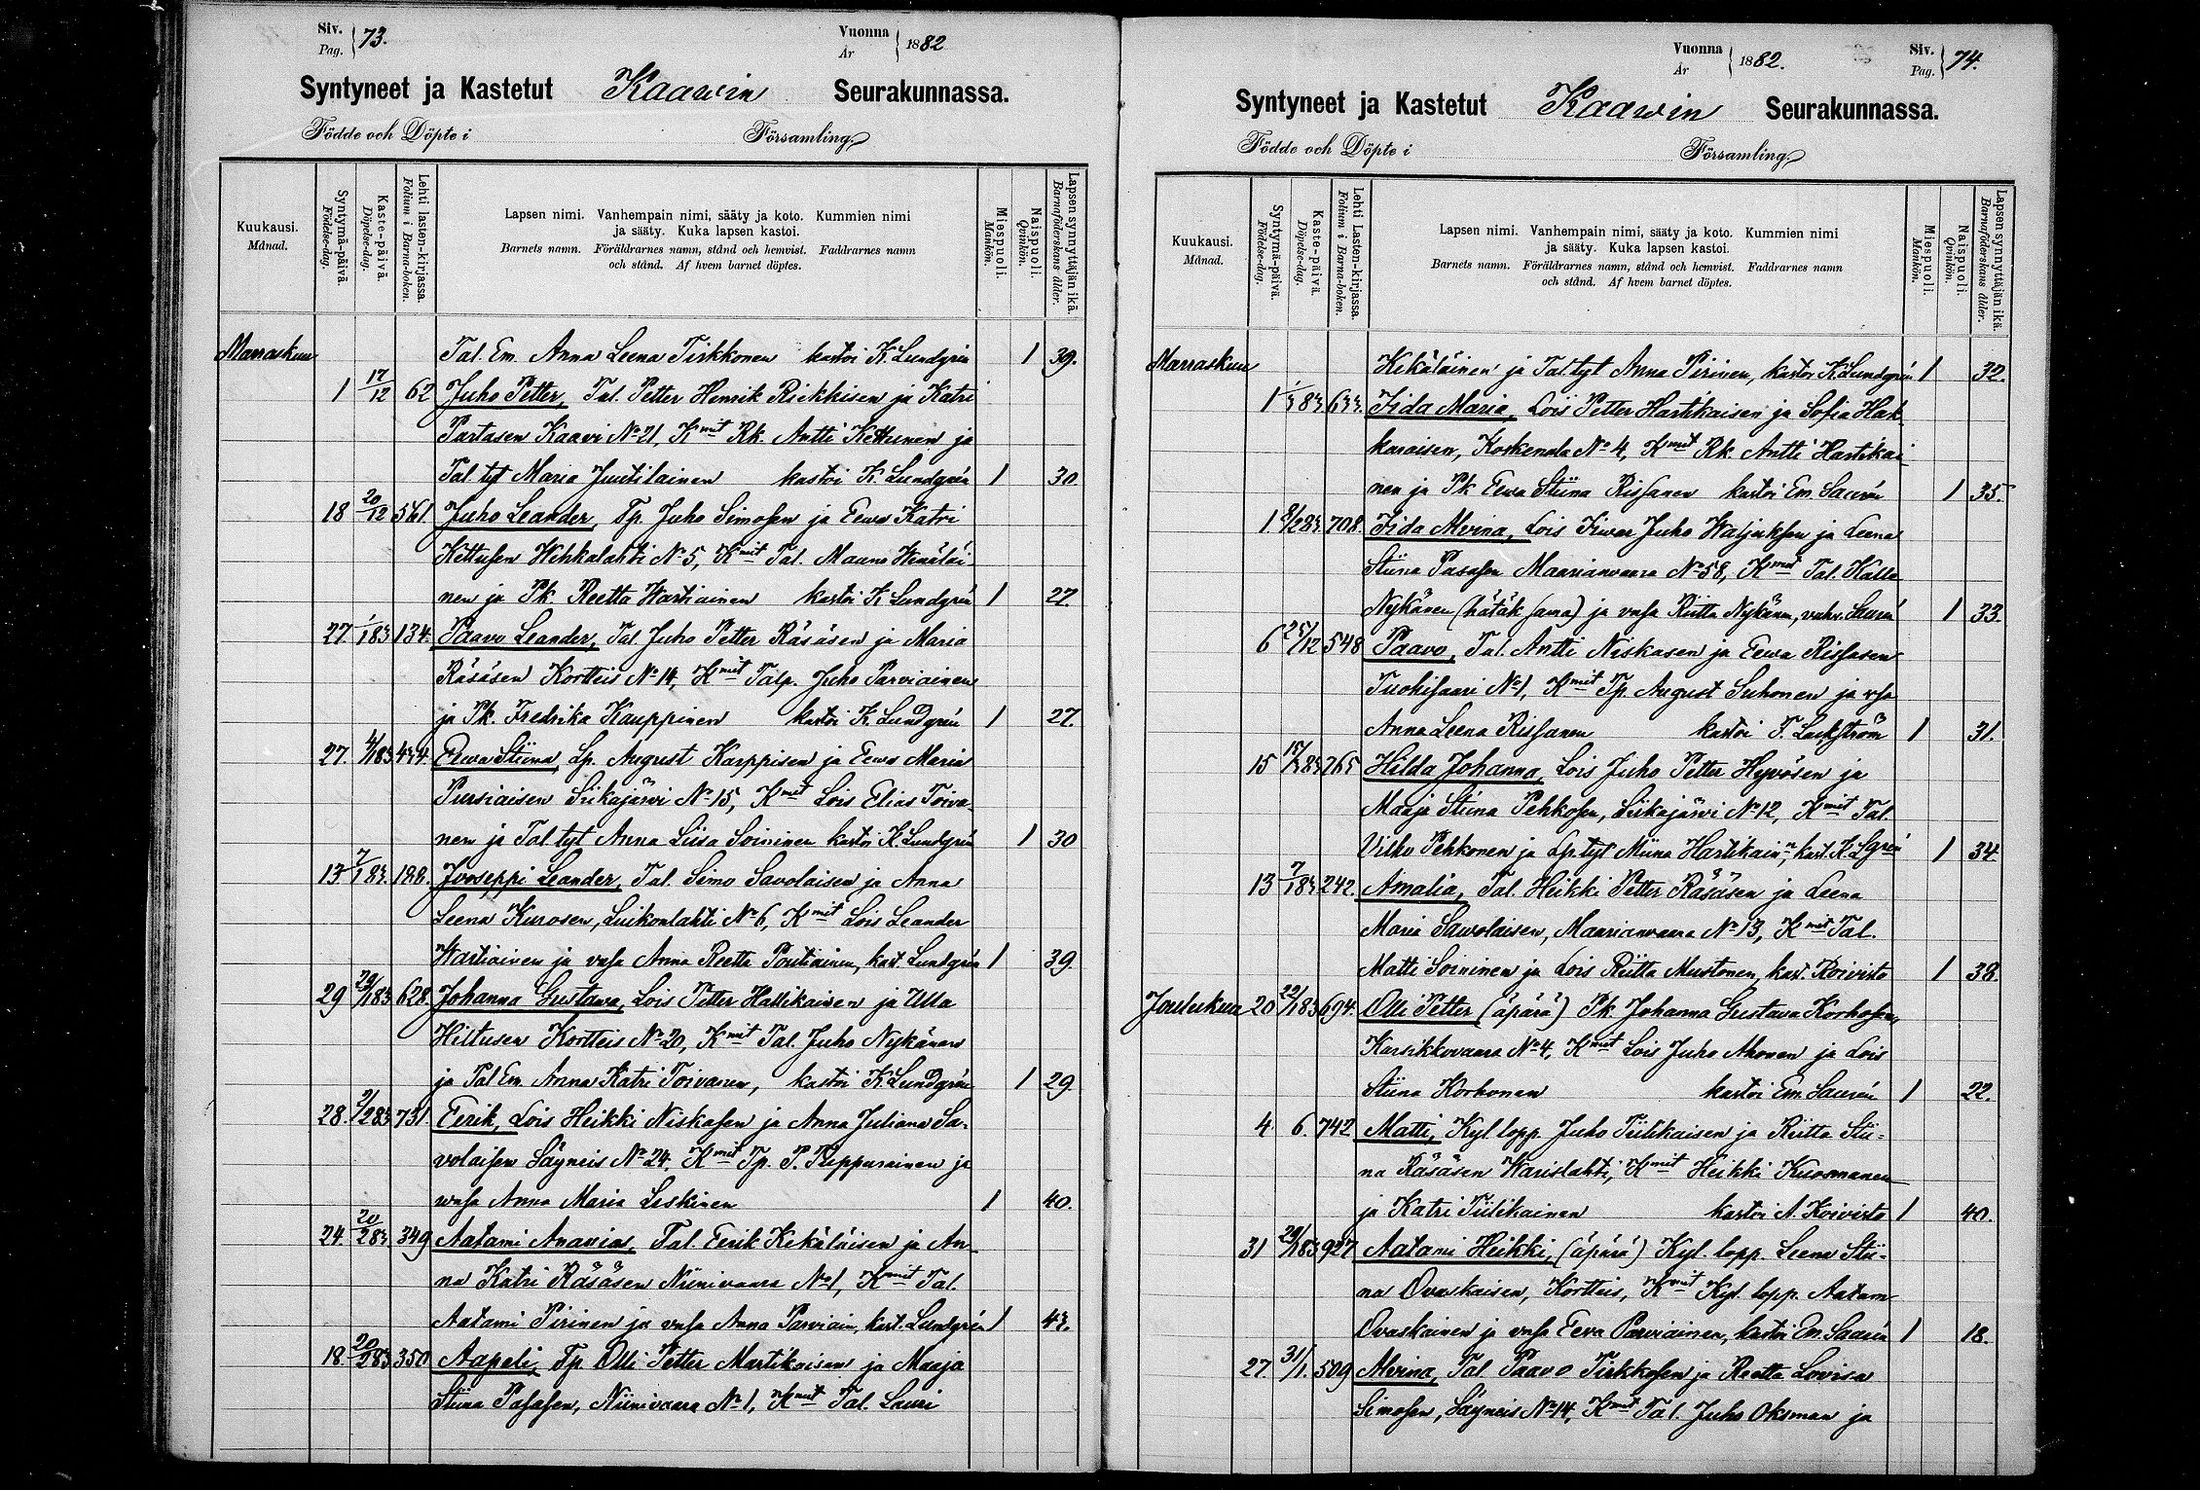 Siv. Pag. } 73.
Vuonna År } 1882
Syntyneet ja Kastetut Kaawin Seurakunnassa.
Födde och Döpte i Församling.
Kuukausi. Månad.
Syntymä-päivä. Födelse-dag.
Kaste-päivä. Döpelse-dag.
Lehti lasten-kirjassa. Folium i Barna-boken.
Lapsen nimi. Vanhempain nimi, sääty ja koto. Kummien nimi
ja sääty. Kuka lapsen kastoi.
Barnets namn. Föräldrarnes namn, stånd och hemvist. Faddrarnes namn
och stånd. Af hvem barnet döptes.
Miespuoli. Mankön.
Naispuoli. Qvinkön.
Lapsen synnyttäjän ikä. Barnaföderskans ålder.
Marraskuu Tal. Em. Anna Leena Tirkkonen kastoi K. Lundgrén 1 39.
1 17/12 62 Juho Petter, Tal. Petter Henrik Riekkisen ja Katri
Partasen Kaavi No 21, Kmit Rk. Antti Kettunen ja
Tal. tyt Maria Juutilainen kastoi K. Lundgrén 1 30
18 20/12 561. Juho Leander, Tp. Juho Simosen ja Eewa Katri
Kettusen Wehkalahti No 5, Kmit Tal. Mauno Wenäläi-
nen ja Pk. Reetta Wartiainen kastoi K Lundgrén 1 27.
27 1/1 83 134. Paavo Leander, Tal. Juho Petter Räsäsen ja Maria
Räsäsen Kortteis No 14, Kmit Talp. Juho Parviainen
ja Pk. Fredrika Kauppinen kastoi K. Lundgrén 1 27.
27. 4/1 83 474. Eewa Stiina, Lp. August Karppisen ja Eewa Maria
Pursiaisen Siikajärvi No 15, Kmit Lois Elias Toiva-
nen ja Tal. tyt Anna Liisa Soininen kastoi K. Lundgrén 1 30
13 7/1 83. 188. Jooseppi Leander, Tal. Simo Savolaisen ja Anna
Leena Kurosen, Luikonlahti No 6, Kmit Lois Leander
Wartiainen ja vaksa Anna Reetta Poutiainen, kast. Lundgrén 1 39.
29 29/1 83 628. Johanna Gustava, Lois Petter Hallikaisen ja Ulla
Hiltusen Kortteis No 20, Kmit Tal. Juho Nykänen
ja Tal Em. Anna Katri Toivanen, kastoi K. Lundgrén 1 29.
28. 2/2 83 731. Eerik, Lois Heikki Niskasen ja Anna Juliana Sa-
volaisen Säyneis No 24, Kmit Tp. P. Puppurainen ja
Anna Maria Leskinen 1 40.
24. 20/2 83. 349 Aatami Ananias, Tal. Eerik Kekäläisen ja An-
na Katri Räsäsen Niinivaara No 1, Kmit Tal.
Aatami Pirinen ja Anna Parviain, kast. Lundgrén 1 43.
18. 20/2 83 350 Aapeli, Tp. Olli Petter Martikaisen ja Maaja
Stiina Pasasen, Niinivaara No 1, Kmit Tal. Lauri
Vuonna År } 1882.
Siv. Pag. } 74.
Syntyneet ja Kastetut Kaawin Seurakunnassa.
Födde och Döpte i Församling.
Kuukausi. Månad.
Syntymä-päivä. Födelse-dag.
Kaste-päivä. Döpelse-dag.
Lehti Lasten-kirjassa. Folium i Barna-boken.
Lapsen nimi. Vanhempain nimi, sääty ja koto. Kummien nimi
ja sääty. Kuka lapsen kastoi.
Barnets namn. Föräldrarnes namn, stånd och hemvist. Faddrarnes namn
och stånd. Af hvem barnet döptes.
Miespuoli. Mankön.
Naispuoli. Qvinkön.
Lapsen synnyttäjän ikä. Barnaföderskans ålder.
Marraskuu Kekäläinen ja Tal. tyt Anna Pirinen, kastoi K. Lundgrén 1 32.
1 1/3 83 633. Iida Maria, Lois Petter Hartikaisen ja Sofia Hak-
karaisen, Koskenala No 4, Kmit Rk. Antti Hartikai-
nen ja Pk Eewa Stiina Rissanen kastoi Em. Saurén 1 35.
1. 8/2 83. 708. Iida Alvina, Lois Iivar Juho Waljaksen ja Leena
Stiina Pasasen Maarianvaara No 58, Kmit Tal. Kalle
Nykänen (hätäk. saa) ja Riitta Nykänen, vahv. Saurén 1 33.
6 25/12 548 Paavo, Tal. Antti Niskasen ja Eewa Rissasen
Tuohisaari No 1, Kmit Tp. August Suhonen ja
Anna Leena Rissanen kastoi F. Lackström 1 31.
15 15/3 83 765 Hilda Johanna, Lois Juho Petter Hyvösen ja
Maaja Stiina Pehkosen, Siikajärvi No 12, Kmit Tal.
Vilho Pehkonen ja Lp. tyt Miina Hartikain kast. K. Lgrén 1 34
13 7/1 83 242. Amalia, Tal. Heikki Petter Räsäsen ja Leena
Maria Sawolaisen, Maarianvaara No 13, Kmit Tal.
Matti Soininen ja Lois Riitta Mustonen, kast. Koivisto 1 38.
Joulukuu 20 22/1 83 694. Olli Petter (äpärä) Pk Johanna Gustava Korhosen,
Karsikkovaara No 4, Kmit Lois Juho Ahonen ja Lois
Stiina Korhonen kastoi Em. Saurén 1 22.
4 6. 742 Matti, Kyl. lopp. Juho Tiilikaisen ja Riitta Stii-
na Räsäsen Warislahti, Kmit Heikki Kuosmanen
ja Katri Tiilikainen kastoi A. Koivisto 1 40.
31 29/1 83 927 Aatami Heikki, (äpärä) Kyl. lopp. Leena Stii-
na Ovaskaisen, Kortteis, Kmit Kyl. lopp. Aatam
Ovaskainen ja Eeva Parviainen, kastoi Em. Saurén 1 18.
27. 31/1. 509 Alvina, Tal Paavo Tirkkosen ja Reetta Lovisa
Simosen, Säyneis No 14, Kmit Tal. Juho Oksman ja